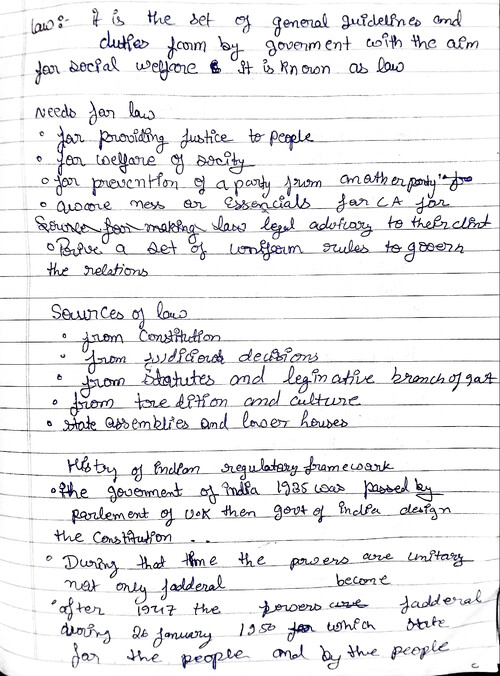 Law:- it is the set of general guidelines and
duties form by goverment with the aim
for social welfore & it is known as law
Needs for law
• for providing Justice to people
• for welfare of socity
• for prevention of a party from another party
• aware ness or Essencials for CA for
making law legal advisary to their clint
• Give a set of uniform rules to govern
the relations
Sources of law
• from Constitution
• from judicious decisions
• from Statutes and leginative branch of govt
• from tore dition and culture
• state assemblies and lower houses
Histry of indian regulatory framework
• The goverment of india 1935 was passed by
parlement of UK then govt of india design
the Constitution ..
• During that time the powers are unitary
not only fadderal
become
• after 1947 the powers are fadderal
during 26 january 1950 for which state
for the people and by the people